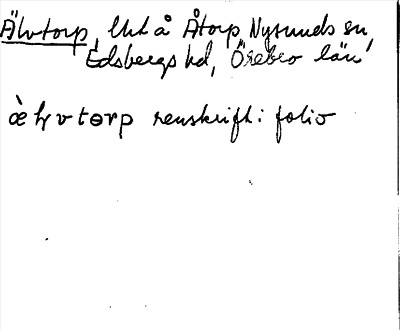 Älvtorp, lht å Åtorp, Nysunds sn,
Edsbergs hd, Örebro län
renskrift i folio